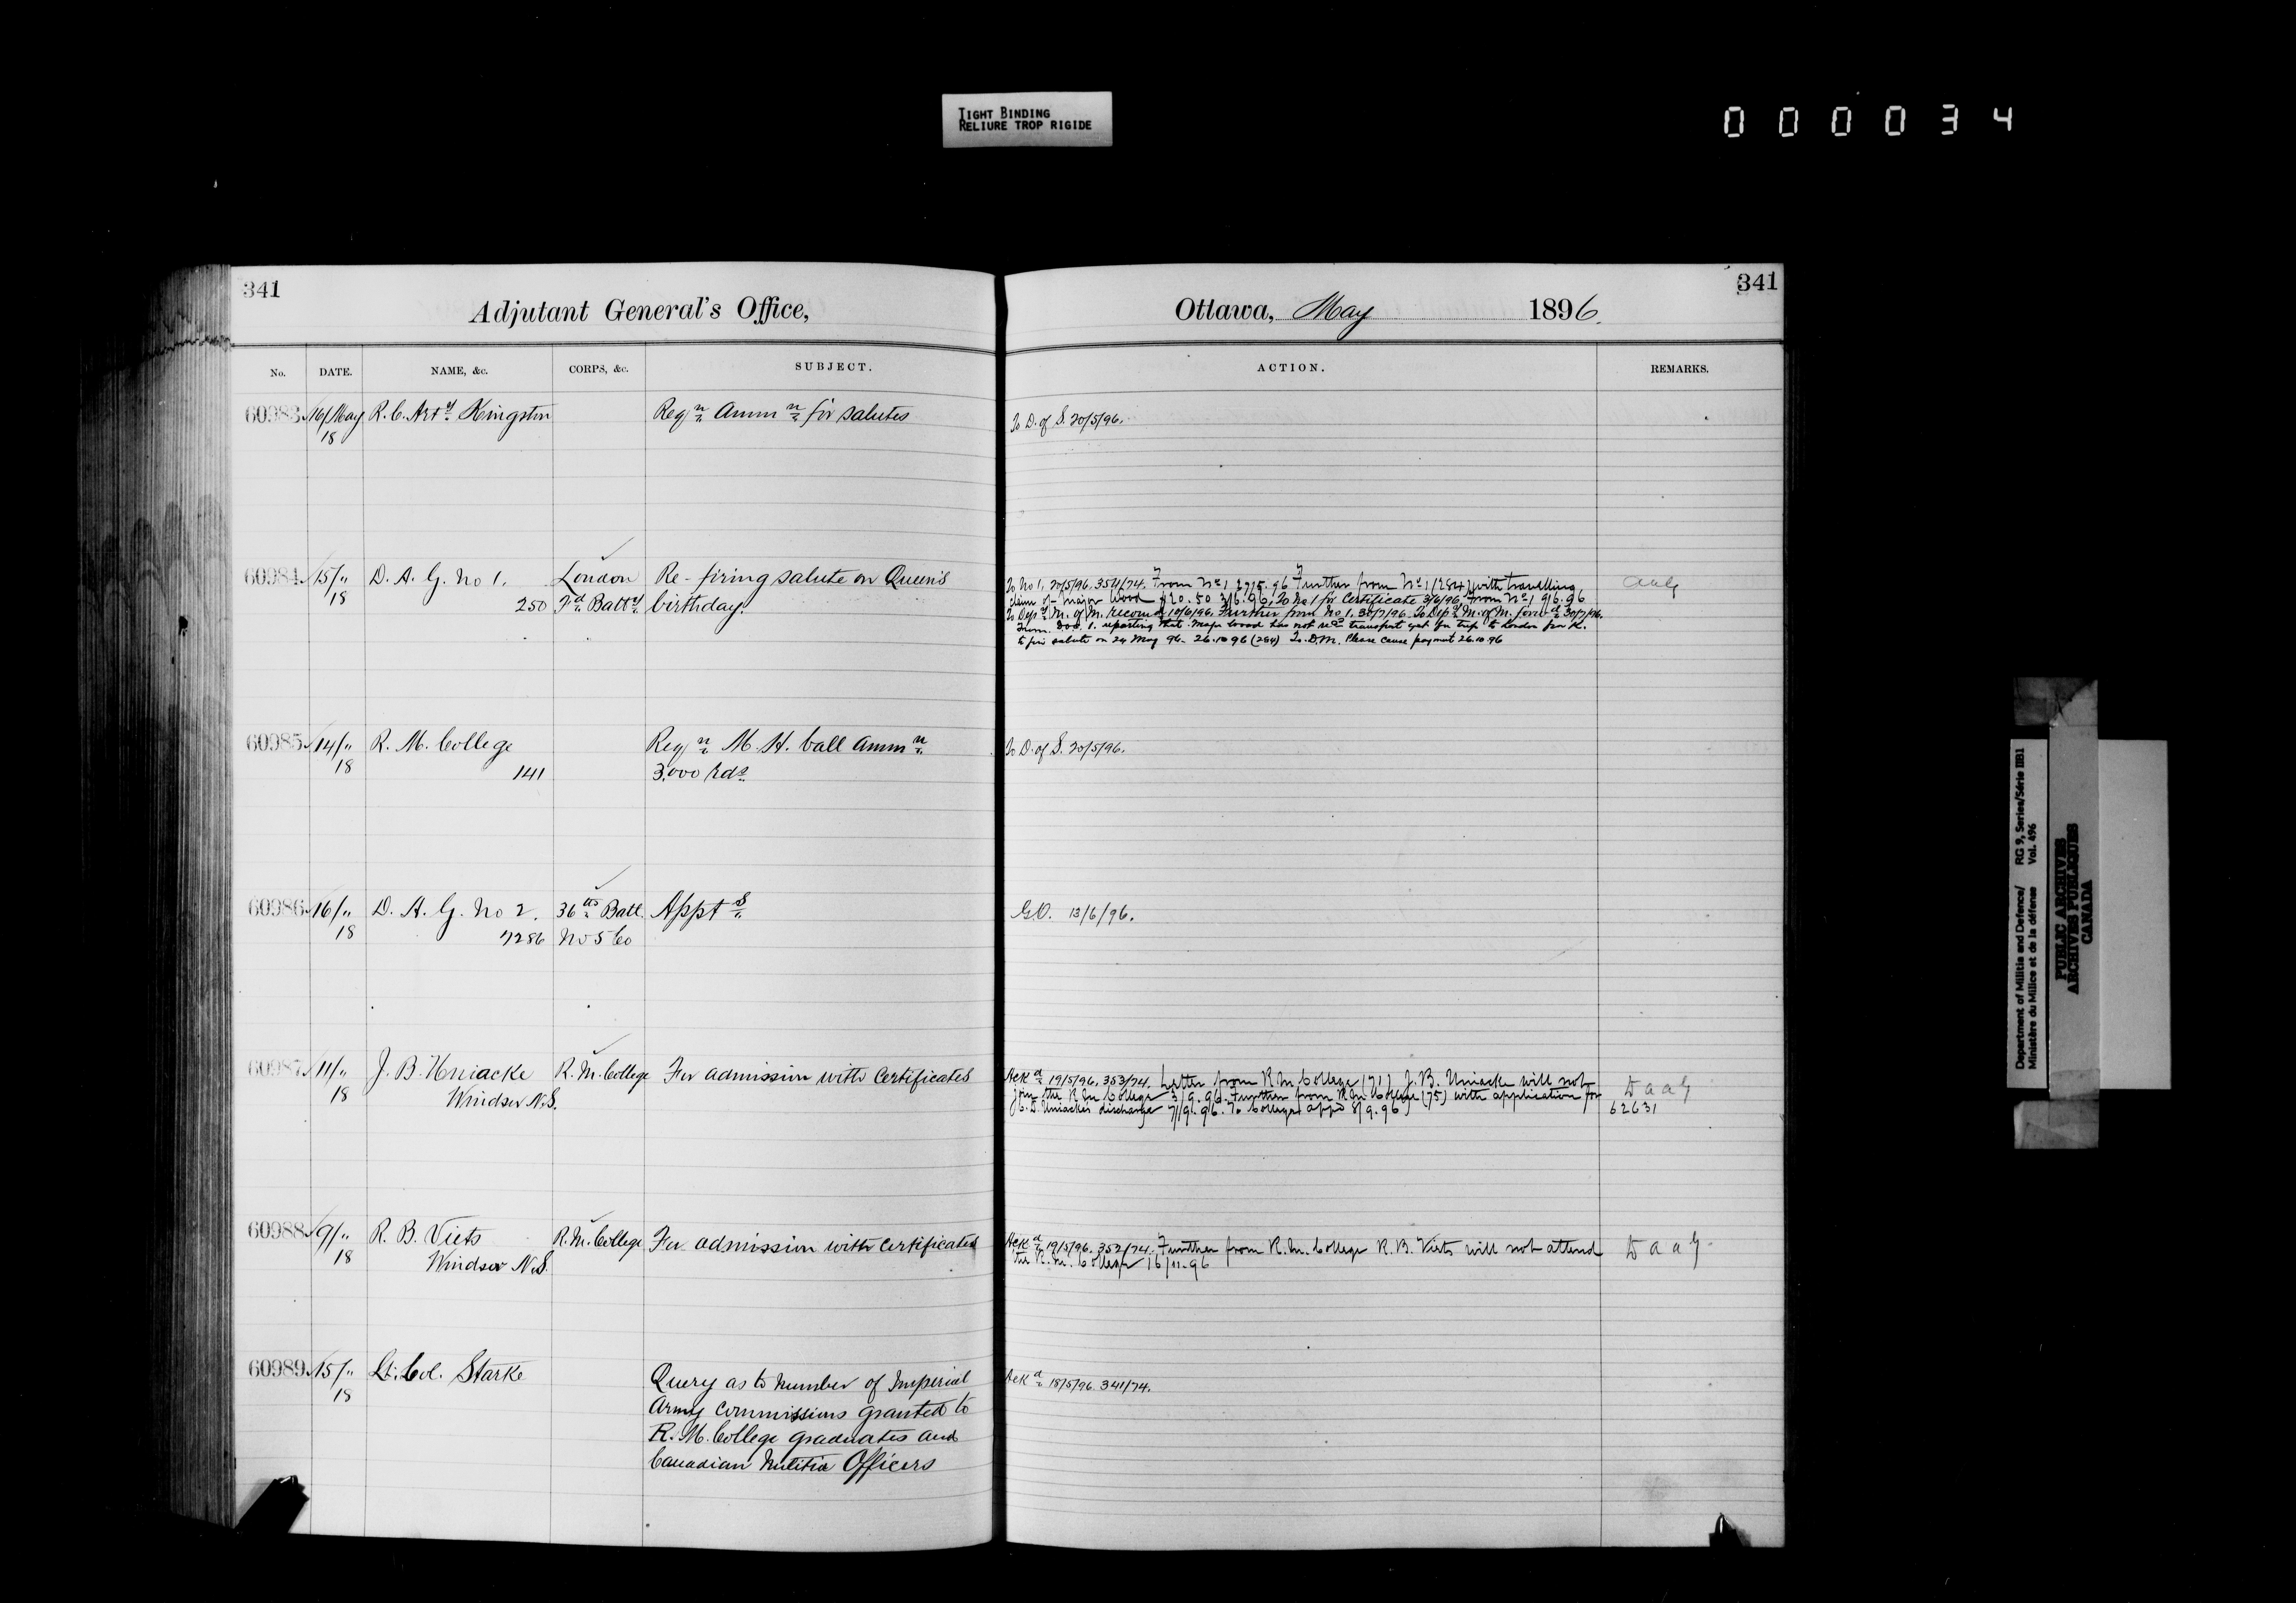 TIGHT BINDING
RELIURE TROP RIGIDE
000034
341
Adjutant General's Office,
No. DATE. NAME, &c. CORPS, &c. SUBJECT.
60983 16/May R. C. Arty Kingston Reqn Ammn for salutes
18
60984 15/" D. A. G. No 1. London Re- firing salute on Queen's
18 250 Fd Batty birthday.
60985 14/" R. M. College Reqn M. H. ball Ammn
18 141 3.000 rds
60986 16/" D. A. G. No 2. 36th Batt. Appts
18 7286 No 5 Co
60987 11/" J. B. Uniacke R. M. College For admission with Certificates
18 Windsor N.S.
60988 9/" R. B. Viets R. M. College For admission with Certificates
18 Windsor N.S.
60989 15/" Lt. Col. Starke Query as to number of Imperial
18 Army Commissions granted to
R. M. College graduates and
Canadian Militia Officers
341
Ottawa, May 1896.
ACTION. REMARKS.
To D. of S. 20/5/96.
To No 1, 20/5/96. 354/74. From No 1 27/5.96 Further from No 1 (284) with travelling
claim of Major Wood $20.50 3/6.96. To No 1 for Certificate 3/6/96. From No 1 9/6.96
To Depy M. of M. recomd 10/6/96. Further from No 1. 30/7/96. To Depy M. of M. forwd 30/7/96.
From D.O.C. 1. reporting that Major Wood has not recd transport yet for trip to London from K.
to fire salute on 24 May 96. 26.10.96 (284) To D.M. Please cause payment 26.10.96
To D. of S. 20/5/96.
G.O. 13/6/96.
Ackd 19/5/96. 353/74. Letter from R M College (71) J. B. Uniacke will not
join the R M College 3/9.96. Further from R M College (75) with application for
J. B. Uniacke's discharge 7/9.96. To College appd 8/9.96 62631
D a a G
Ackd 19/5/96. 352/74. Further from R. M. College R. B. Viets will not attend D a a G
the R. M. College 16/11.96
Ackd 18/5/96. 341/74.
Department of Militia and Defence/ RG 9, Series/Série IIB1
Ministère du Milice et de la défense Vol. 496
PUBLIC ARCHIVES
ARCHIVES PUBLIQUES
CANADA